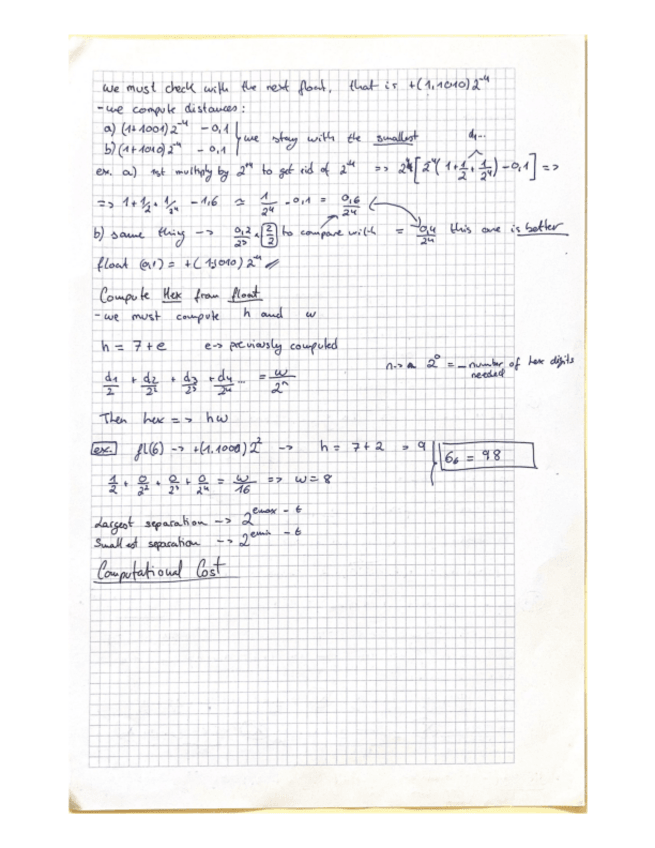 we must check with the next float, that is +(1,1010)2^-4
- we compute distances:
a) (1+1001)2^-4 - 0,1
b) (1+1010)2^-4 - 0,1 } we stay with the smallest
d1...
ex. a) 1st multiply by 2^4 to get rid of 2^-4 => 2^4[2^-4(1+1/2+1/2^4)-0,1] =>
=> 1+1/2+1/2^4 - 1,6 ≃ 1/2^4 - 0,1 = 0,6/2^4
b) same thing -> 0,2/2^3 · 2/2 to compare with = 0,4/2^4 this one is better
float (0,1) = +(1,1010)2^-4 //
Compute Hex from float
- we must compute h and w
h = 7+e e-> previously computed
n-> 2^n = number of hex digits needed
d1/2 + d2/2^2 + d3/2^3 + d4/2^4 ... = w/2^n
Then hex => hw
ex. fl(6) -> +(1.1000)2^2 -> h = 7+2 = 9 } 6_6 = 98
1/2 + 0/2^2 + 0/2^3 + 0/2^4 = w/16 => w=8
Largest separation --> 2^emax - t
Smallest separation --> 2^emin - t
Computational Cost